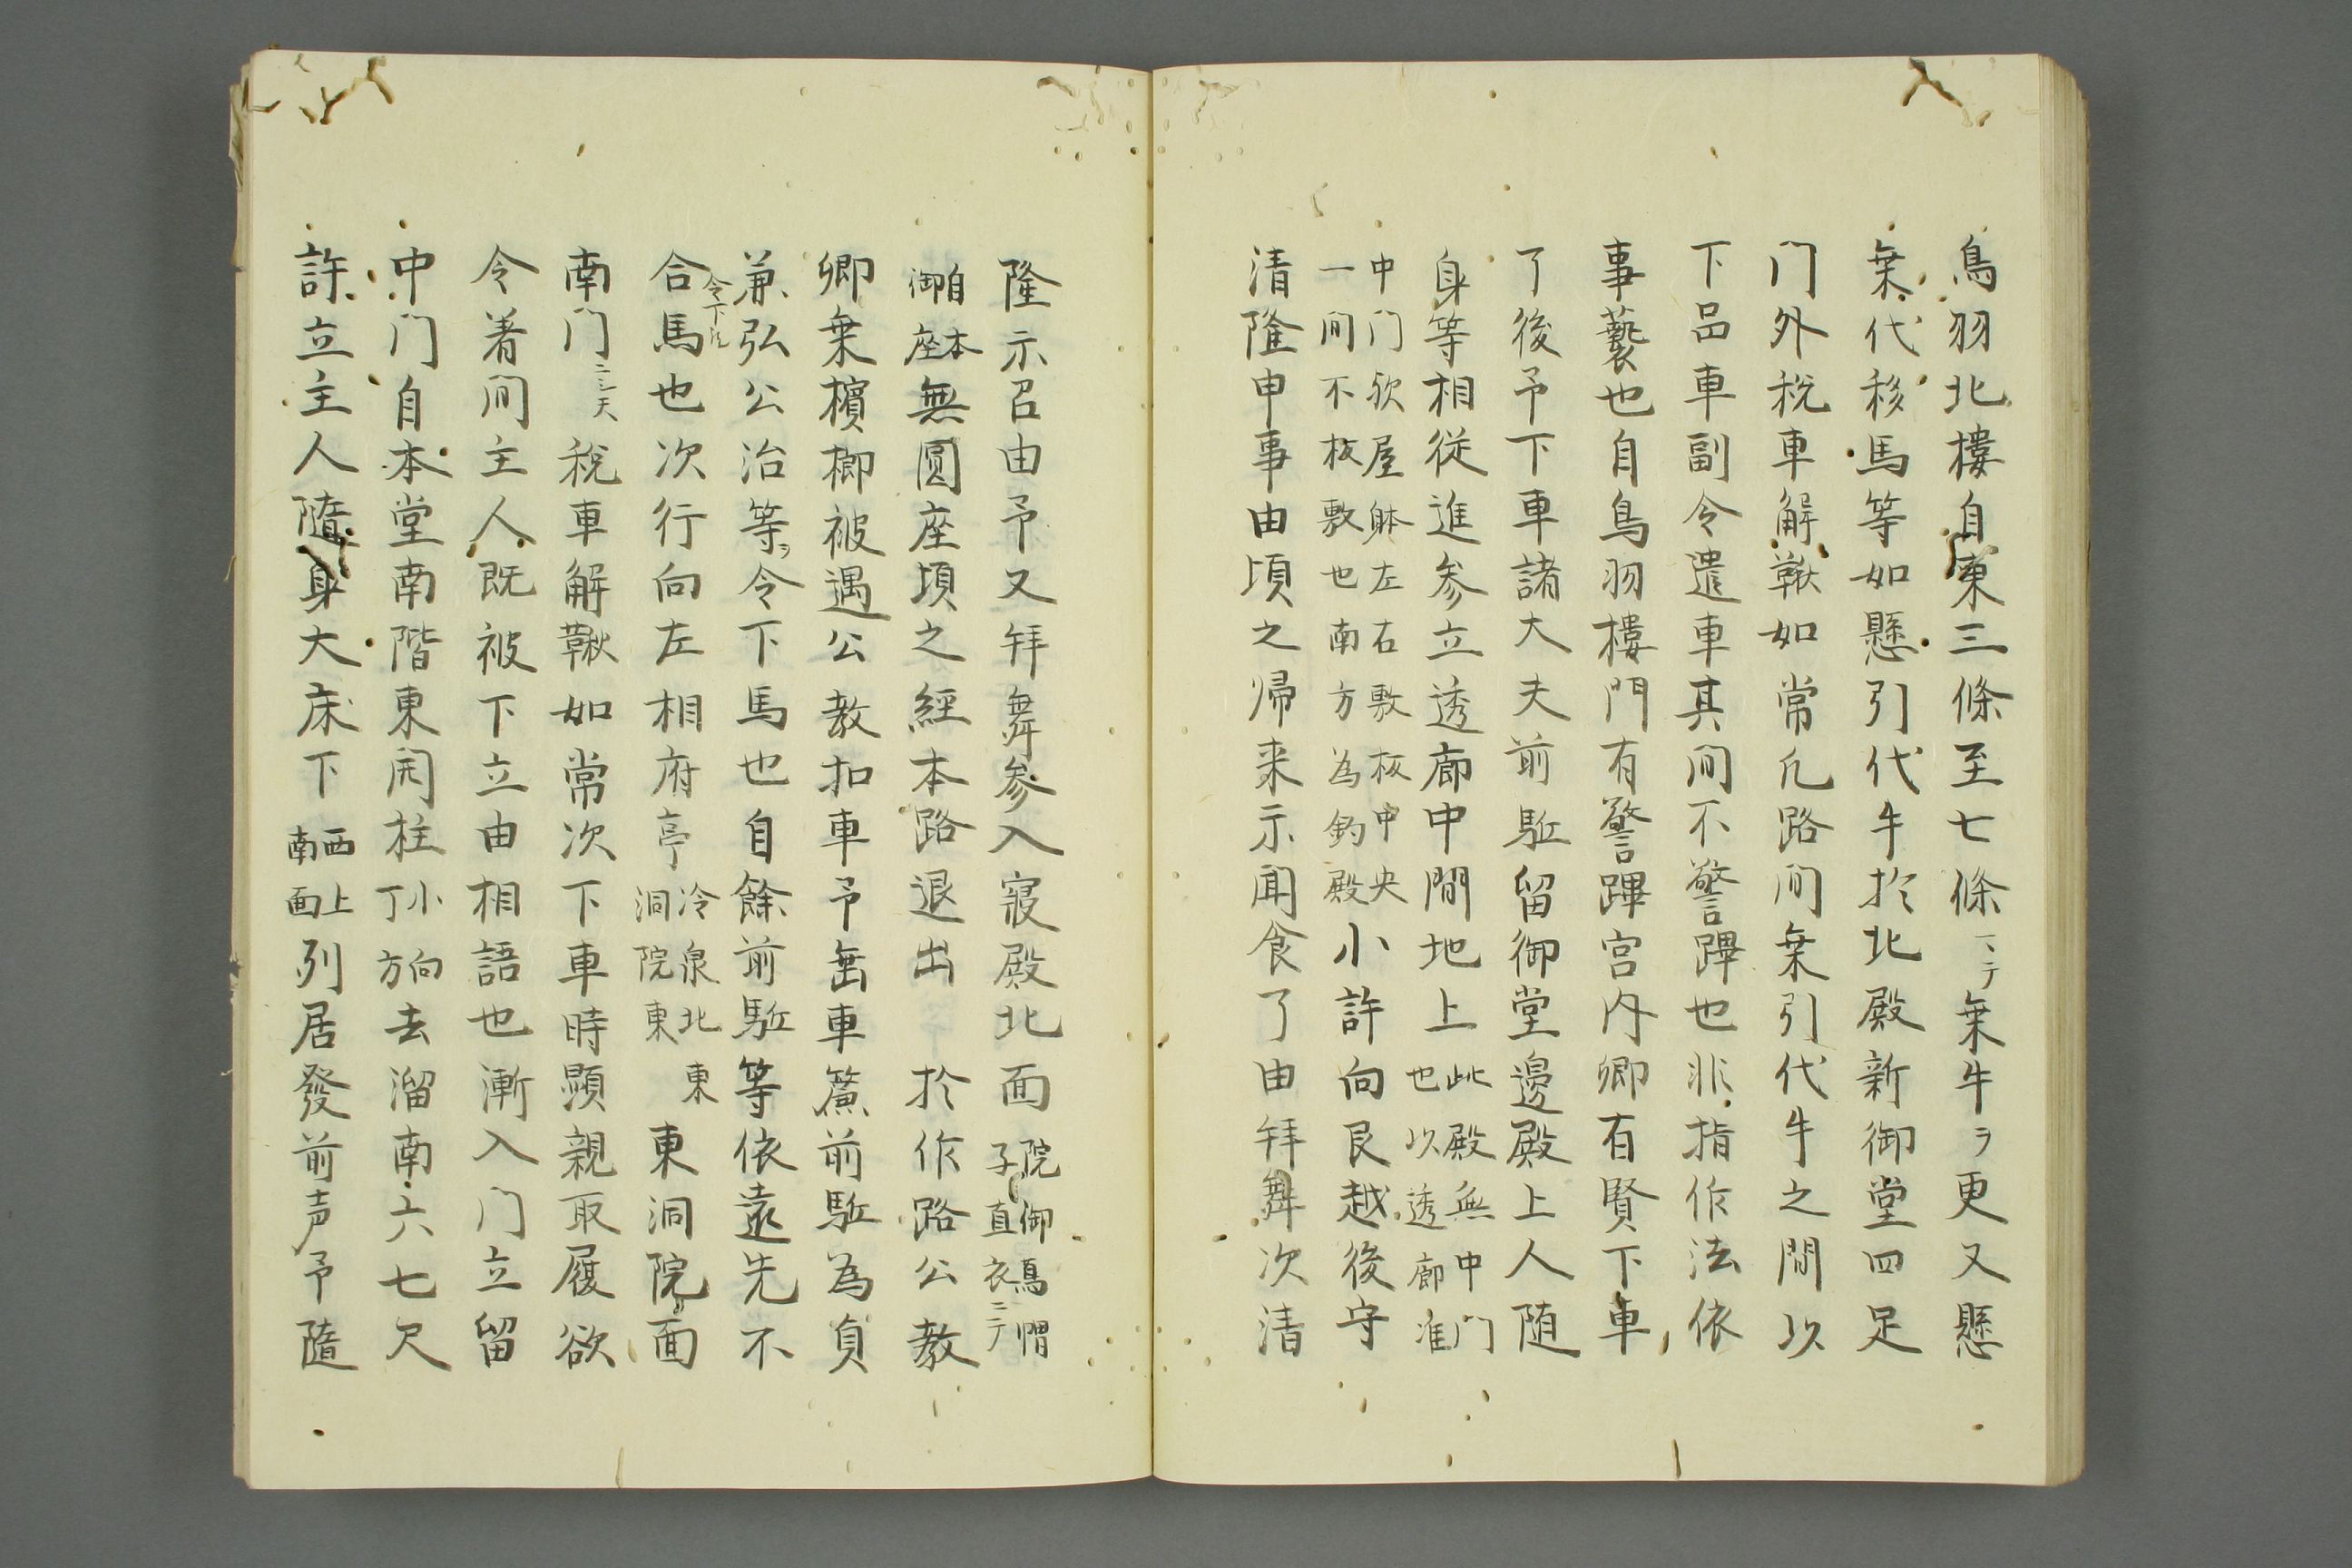 鳥羽北樓自東三條至七條ヽテ棄牛ヲ更又懸
棄代移馬等如懸引代牛扵北殿新御堂四足
门外税車解鞦如常凢路间棄引代牛之間以
下品車副令遣車其间不警蹕也非指作法依
事褻也自鳥羽樓門有警蹕宫内卿有賢下車
了後予下車諸大夫前駈留御堂邊殿上人随
身等相従進参立透廊中間地上此殿無中门
也以透廊准
中门欤屋躰左右敷板中央
一间不板敷也南方為釣殿小許向艮越後守
清隆申事由頃之帰来示聞食了由拜舞次清
隆示召由予又拜舞参入寢殿北面院御烏帽
子直衣ニテ
自本
御座無圓座頃之經本路退出 扵作路公教
卿棄檳榔被遇公教扣車予垂車簾前駈為貞
兼弘公治等ヲ令下馬也自餘前駈等依遠先不
令下
合馬也次行向左相府亭冷泉北東
洞院東東洞院面
南门税車解鞦如常次下車時顯親取履欲
令着间主人既被下立由相語也漸入门立留
中门自本堂南階東闬柱小向
丁方去溜南六七尺
許立主人隨身大床下西上
南面列居發前声予隨